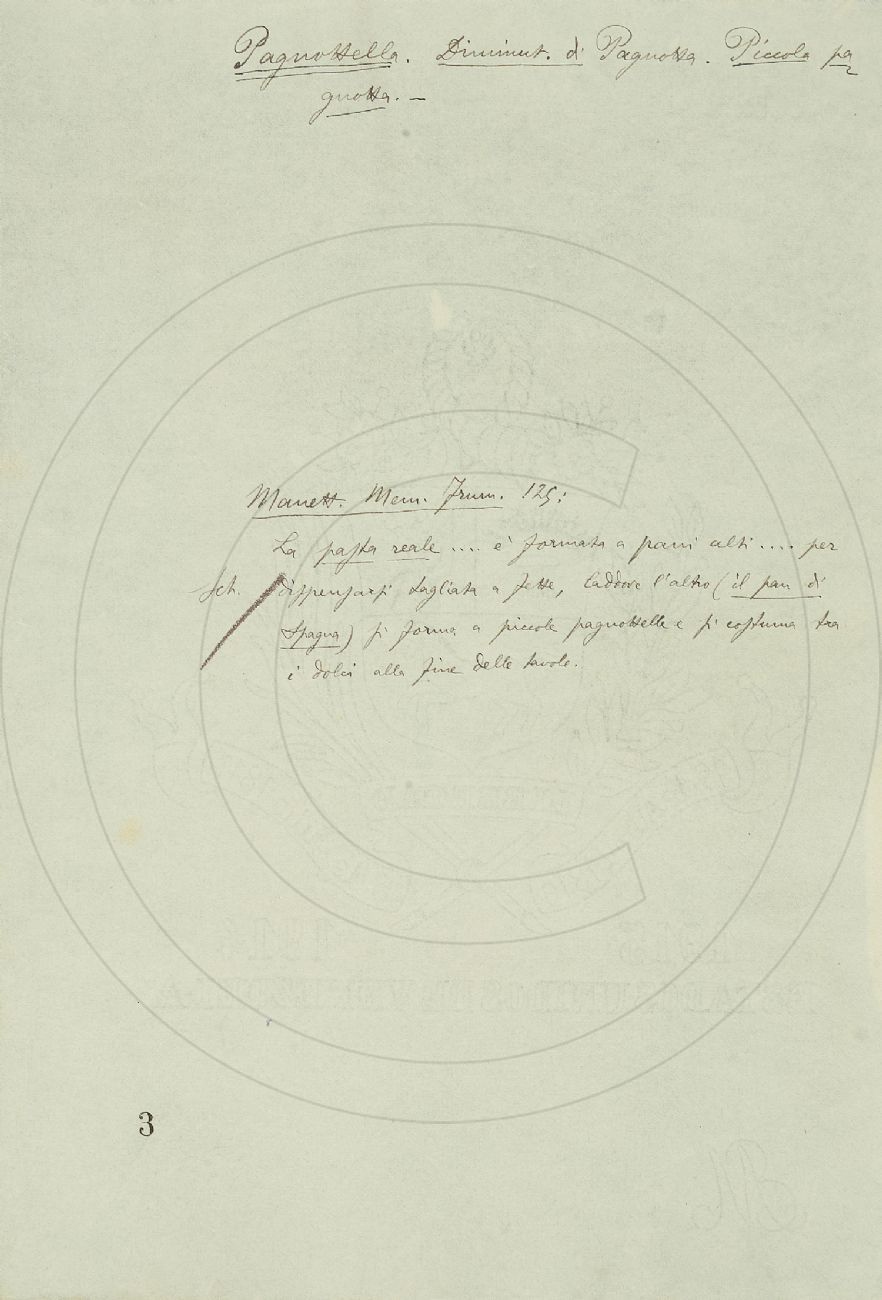 Pagnottella. Diminut. di Pagnotta. Piccola pa
gnotta. —
Manett. Mem. Frum. 125:
La pasta reale .... è formata a pani alti .... per
Sch. dispensarsi tagliata a fette, laddove l'altro (il pan di
Spagna) si forma a piccole pagnottelle e si costuma tra
i dolci alla fine delle tavole.
3